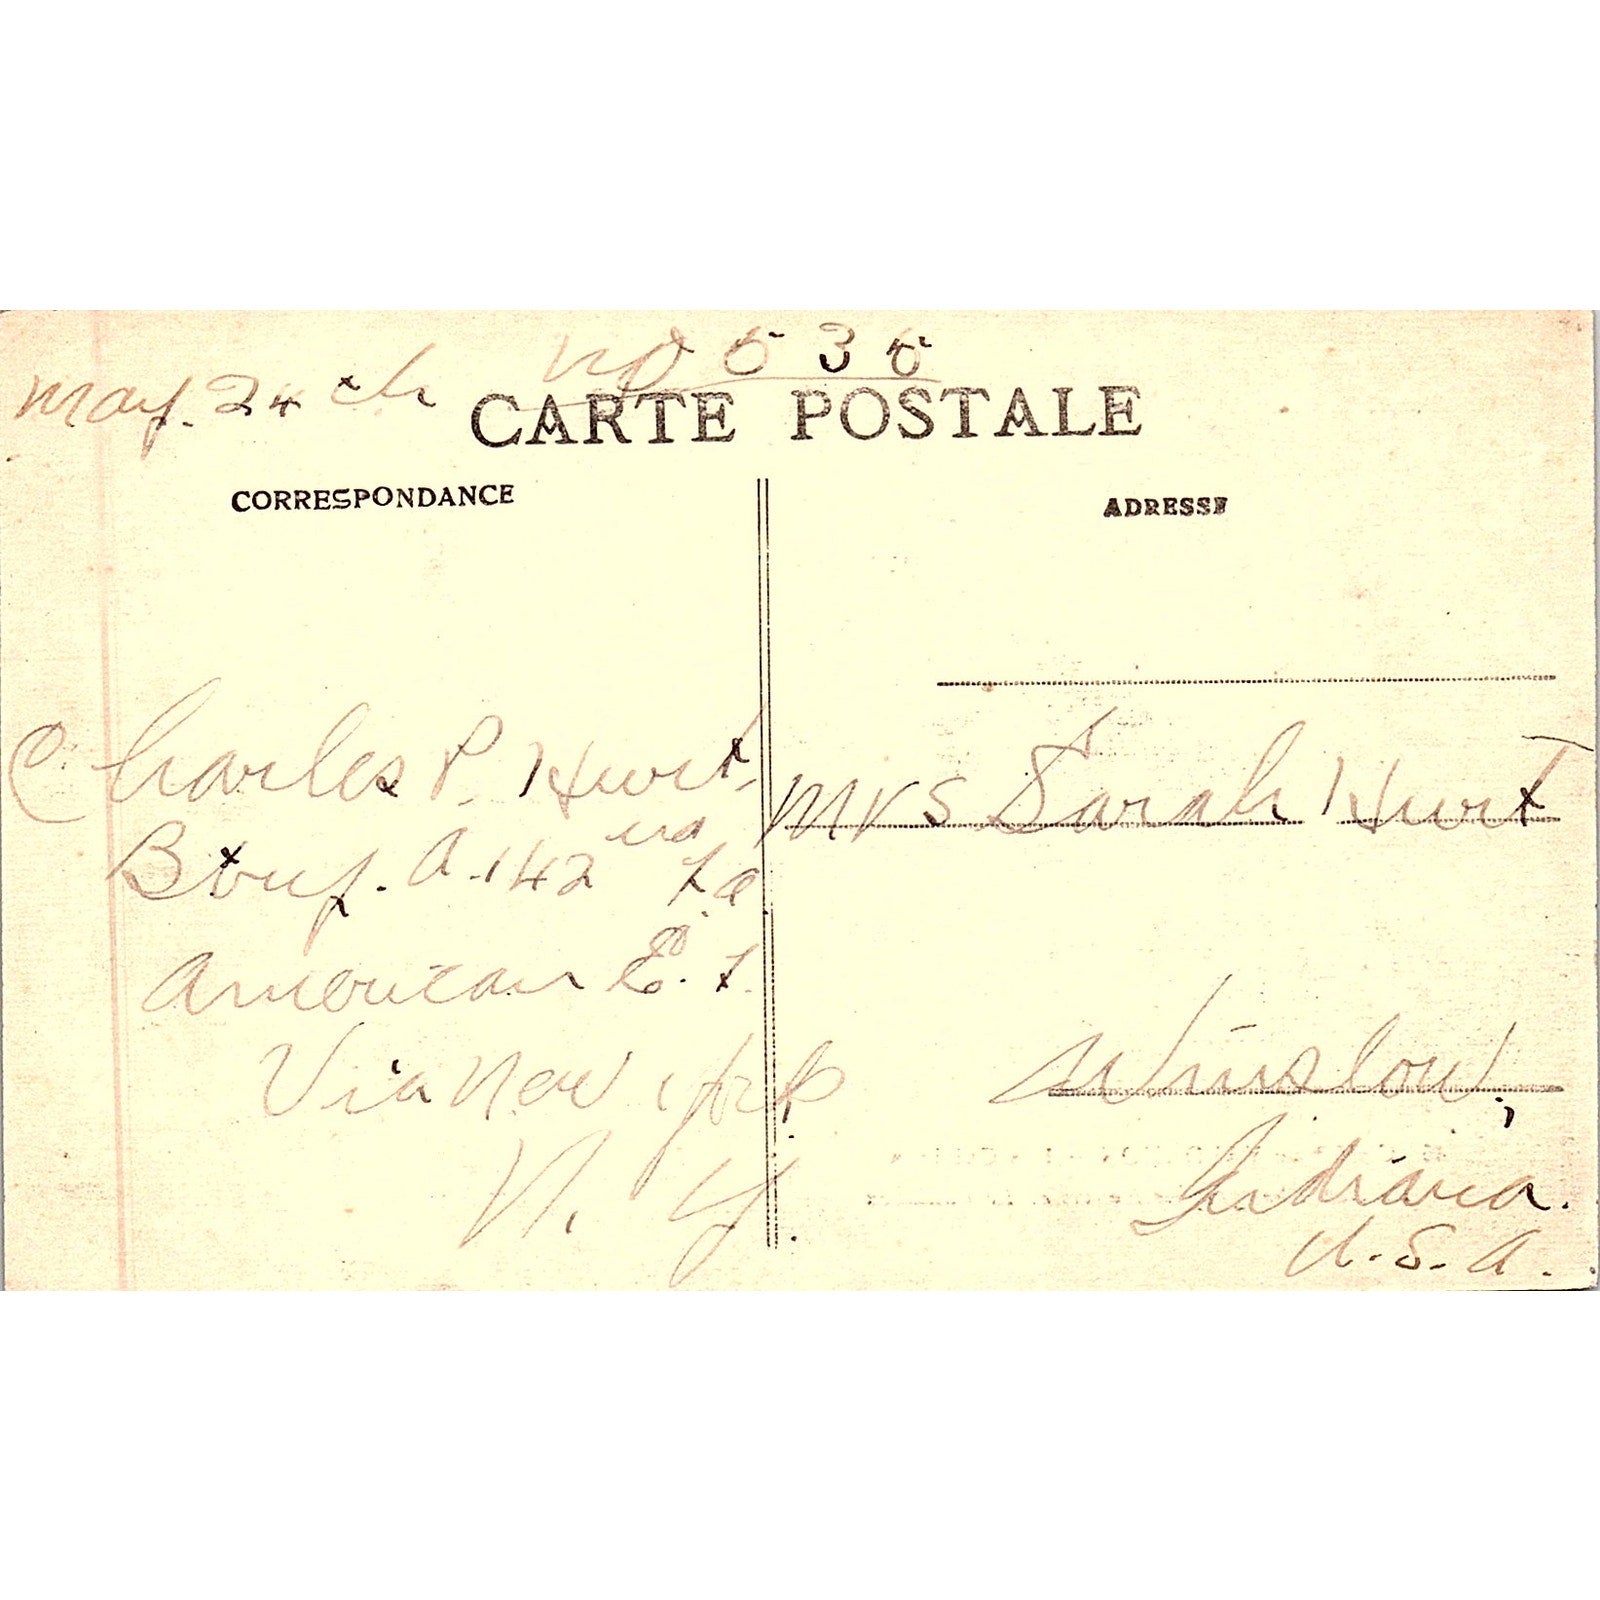 May. 24th No 536
CARTE POSTALE
CORRESPONDANCE
ADRESSE
Charles P. Hurt.
Btry. A. 142nd F.a.
American E. F.
Via New York
N. Y.
Mrs Sarah Hurt
Winslow,
Indiana.
U.S.A.